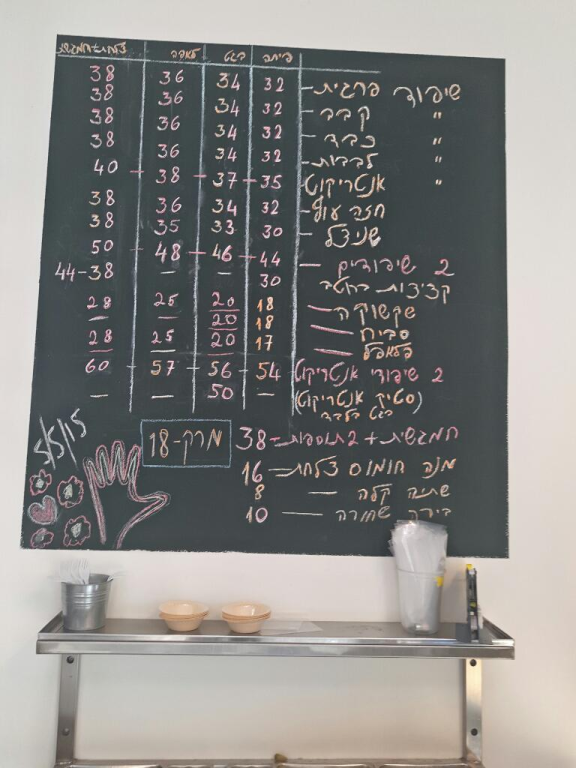 פיתה בגט לאפה צלחת+חמגשית
שיפוד פרגית – 32 34 36 38
" קבב – 32 34 36 38
" כבד – 32 34 36 38
" לבבות – 32 34 36 38
" אנטריקוט – 35 – 37 – 38 – 40
חזה עוף – 32 34 36 38
שניצל – 30 33 35 38
2 שיפודים – 44 – 46 – 48 – 50
קציצות ברוטב 30 – – 44-38
שקשוקה – 18 20 25 28
סביח – 18 20 – –
פלאפל – 17 20 25 28
2 שיפודי אנטריקוט 54 – 56 – 57 – 60
(סטיק אנטריקוט) – 50 – –
בגט בלבד
חמגשית + 2 תוספות – 38
מרק-18
מנה חומוס צלחת – 16
שתיה קלה – 8
בירה שחורה – 10
5/5/15